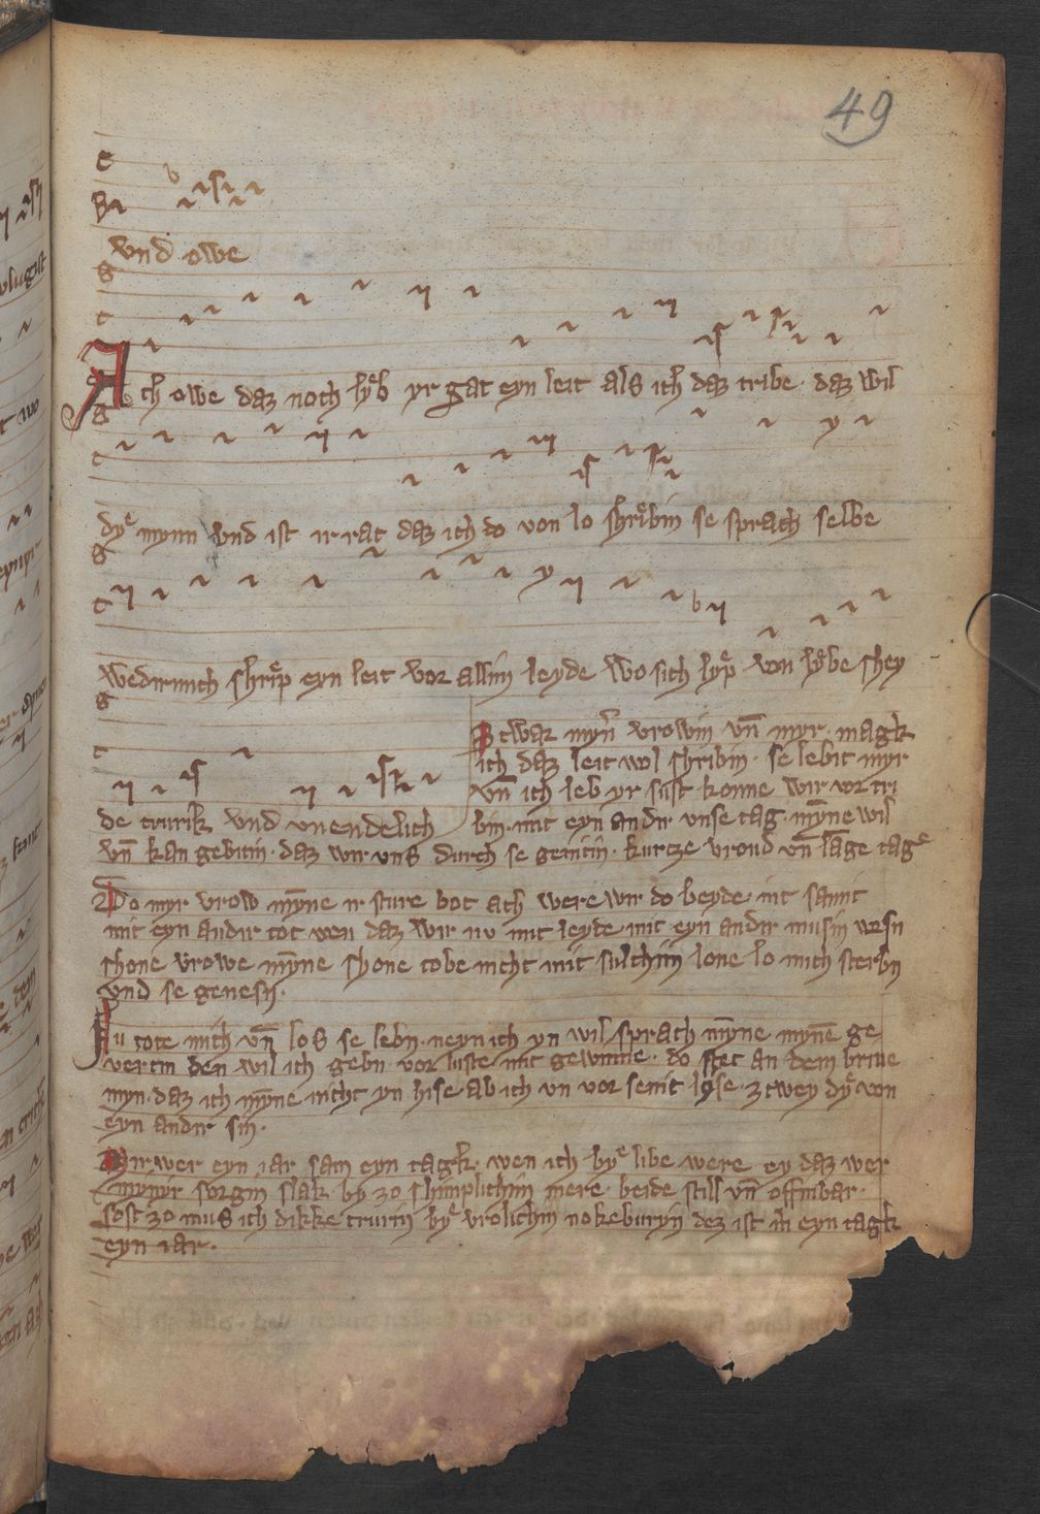 49
vnd owe
Ach owe daz noch lyͤb yr gat eyn leit als ich daz tribe· daz wil
dyͤ mynn vnd ist ir rat daz ich do von lo shrͤibin se sprach selbe
wedir mich shrͤip eyn leit vor allin leyde wo sich lyͤp von lyͤbe shey
de trurik vnd vnendelich
Ztwar myn̄ vrowin vn̄ myr· magk
ich daz leit wol shribin· se lebit myr
vn̄ ich leb yr sust konne wir vor tri
bin· mit eyn andir vnse tag· mȳne wil
vn̄ kan gebitin· daz wir vns durch se
kurtze vroud vn̄ lāge tagͤ
Do myr vrow mȳne ir sture bot ach were wir do beyde· mt samit
mit eyn andir tot wen daz wir nv mit leyde mit eyn andir musin wesn
shone vrowe mȳne shone tobe nicht mit sulchim lone lo mich sterbn
vnd se genesn·
Nu tote mich vn̄ los se lebn· neyn ich yn wil sprach mȳne myn̄e ge
vertin den wil ich gebn vor luste mit gewinne· do stet an dem briue
myn· daz ich mȳne nicht yn hise· ab ich vn vor senit lise· ztwey dyͤ von
eyn andir sin·
Mir wer eyn iar sam eyn tagk· wen ich byͤ libe were ey daz wer
mynyr sorgin slak by zo shimplichim mere· beide still vn̄ offinbar·
sost zo mus ich dikke trurin byͤ vrolichin nokeburyn dez ist m̄ eyn tagk
eyn iar·